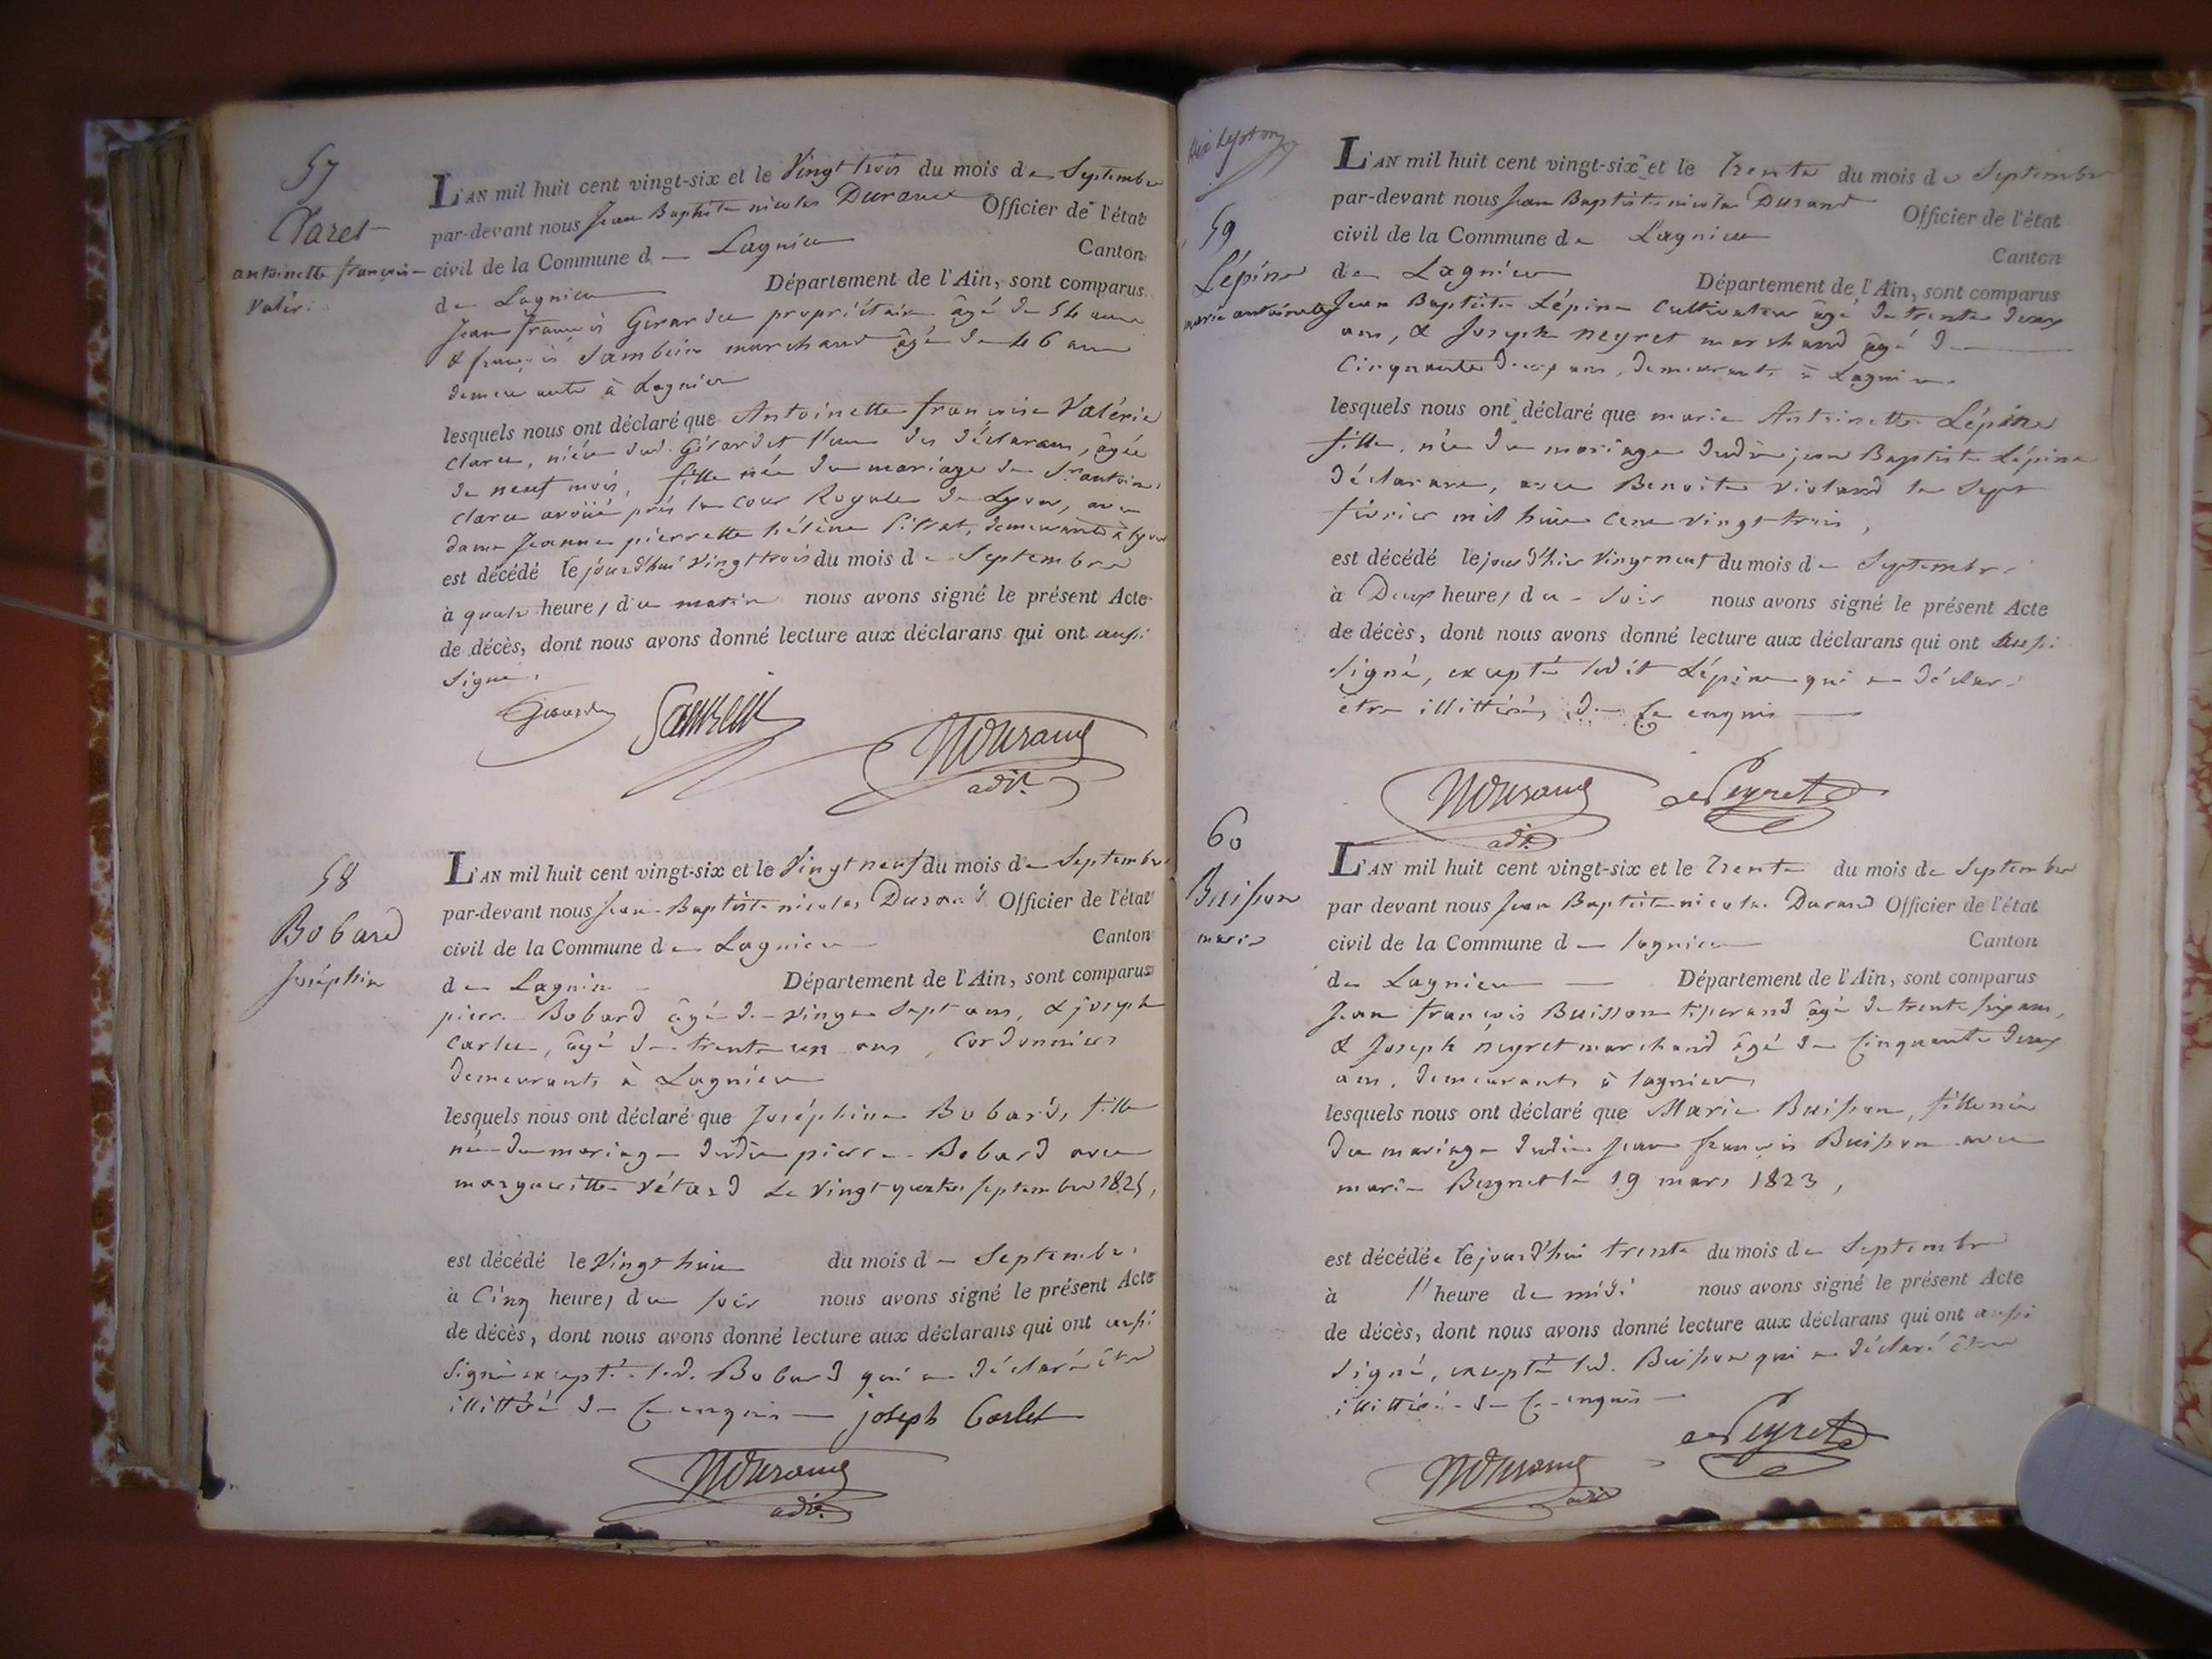 57
Claret
antoinette françoise
Valéri
L'AN mil huit cent vingt-six et le Vingt trois du mois de Septembre
par-devant nous Jean Baptiste nicolas Durand Officier de l'état
civil de la Commune de Lagnieu Canton
de Lagnieu Département de l'Ain, sont comparus
Jean françois Girardet propriétaire âgé de 54 ans
& françois marchand âgé de 46 ans
demeurants à Lagnieu
lesquels nous ont déclaré que Antoinette françoise Valérie
claret, nièce dud. Girardet l'un des déclarans, âgée
de neuf mois, fille née du mariage de Sr. antoine
claret avoüé près la cour Royale de Lyon, avec
dame Jeanne pierrette hélène Pitrat, demeurants à Lyon
est décédé le jourd'hui vingt trois du mois de Septembre
à quatre heures du matin nous avons signé le présent Acte
de décès, dont nous avons donné lecture aux déclarans qui ont aussi
signé.
NDurand
adjt.
58
Bobard
Joséphine
L'AN mil huit cent vingt-six et le Vingt neuf du mois de Septembre
par-devant nous Jean-Baptiste nicolas Durand Officier de l'état
civil de la Commune de Lagnieu Canton
de Lagnieu Département de l'Ain, sont comparus
pierre Bobard âgé de vingt sept ans, & joseph
Carlet, âgé de trente un ans, Cordonniers
demeurants à Lagnieu
lesquels nous ont déclaré que Joséphine Bobard, fille
née du mariage dudit pierre Bobard avec
margueritte Vétard le Vingt quatre septembre 1825,
est décédé le Vingt huit du mois de Septembre
à Cinq heures du soir nous avons signé le présent Acte
de décès, dont nous avons donné lecture aux déclarans qui ont aussi
signé excepté led. Bobard qui a déclaré être
illittéré de ce enquis joseph Carlet
NDurand
adjt.
59
Lépine
marie antoinette
L'AN mil huit cent vingt-six et le Trente du mois de Septembre
par-devant nous Jean Baptiste nicolas Durand Officier de l'état
civil de la Commune de Lagnieu
Canton
de Lagnieu Département de l'Ain, sont comparus
Jean Baptiste Lépine Cultivateur âgé de trente deux
ans, & Joseph neyret marchand âgé de
Cinquante deux ans, demeurants à Lagnieu
lesquels nous ont déclaré que marie Antoinette Lépine
fille née du mariage dudit jean Baptiste Lépine
déclarant, avec Benoite violand le sept
février mil huit cent vingt trois,
est décédé le jour d'hier vingt neuf du mois de Septembre
à Deux heures du soir nous avons signé le présent Acte
de décès, dont nous avons donné lecture aux déclarans qui ont aussi
signé, excepté ledit Lépine qui a déclaré
être illittéré, de ce enquis
NDurand Neyret
adjt.
60
Buisson
marie
L'AN mil huit cent vingt-six et le Trente du mois de Septembre
par devant nous Jean Baptiste nicolas Durand Officier de l'état
civil de la Commune de lagnieu Canton
de Lagnieu Département de l'Ain, sont comparus
Jean françois Buisson tisserand âgé de trente six ans,
& Joseph neyret marchand âgé de Cinquante deux
ans, demeurants à lagnieu
lesquels nous ont déclaré que Marie Buisson, fille née
du mariage dudit Jean françois Buisson avec
marie Bugnet le 19 mars 1823,
est décédée le jourd'hui trente du mois de Septembre
à l'heure de midi nous avons signé le présent Acte
de décès, dont nous avons donné lecture aux déclarans qui ont aussi
signé, excepté led. Buisson qui a déclaré être
illittéré de ce enquis
NDurand Neyret
adjt